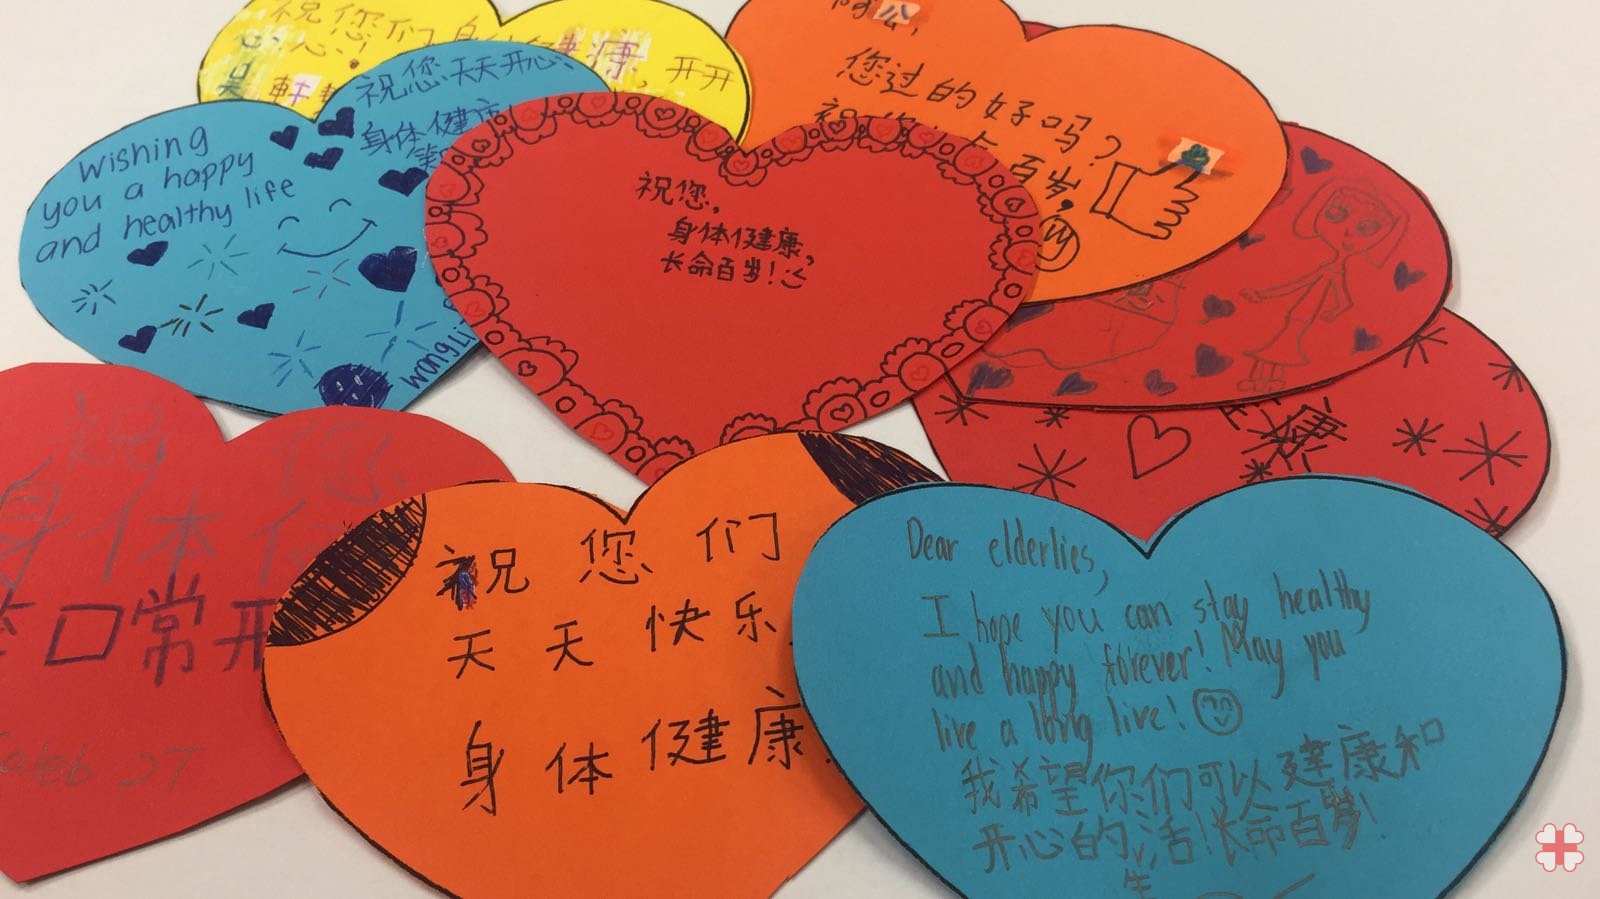 祝您们身体健康,开开
心心!
阿公,
您过的好吗?
百岁!
wishing
you a happy
and healthy life
祝您天天开心
身体健康
wangli
祝您,
身体健康,
长命百岁!:<
祝您
身体
口常开
Caleb 2T
祝您们
天天快乐,
身体健康!
Dear elderlies,
I hope you can stay healthy
and happy forever! May you
live a long live!
我希望你们可以建康和
开心的生活!长命百岁!